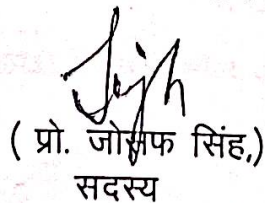 ( प्रो. जोसफ सिंह,)
सदस्य